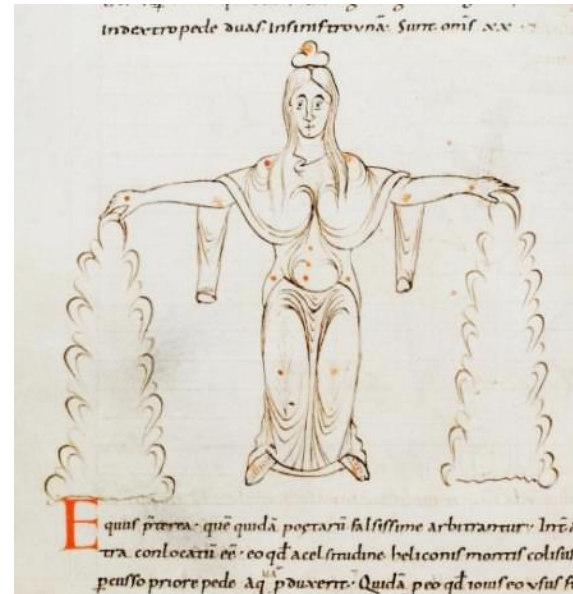 Indextro pede duas. Insinistro unā. Sunt om̄s xx
Equus p̄terea. quē quidā poetarū falsissime arbitrantur.
tra conlocatū eē. eo qđ acelsitudine heliconis montis
pcusso priore pede aq p̄duxerit. Quidā peo qđ iouis eo usus